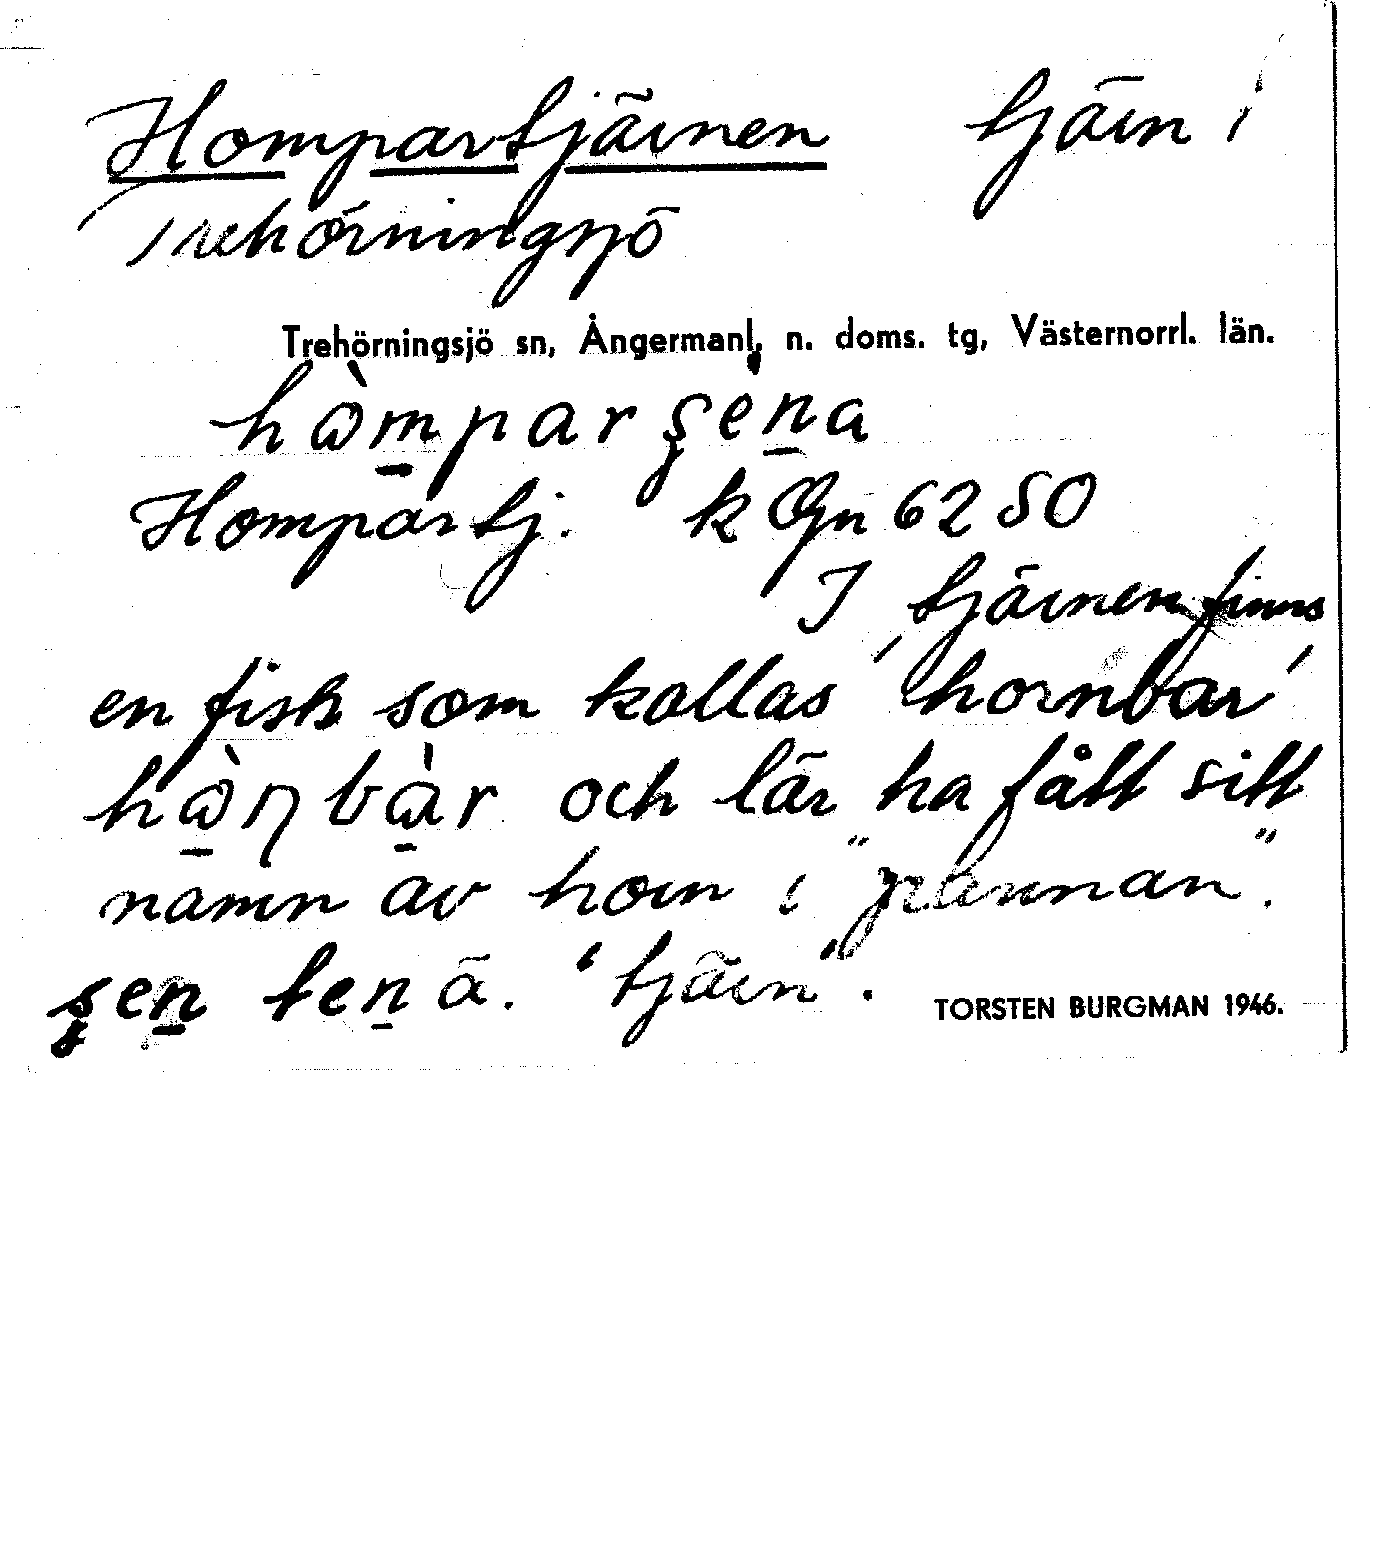 Hompartjärnen tjärn i
Trehörningsjö
Trehörningsjö sn, Ångermanl. n. doms. tg, Västernorrl. län.
hòmparşèna
Hompartj. k Ögn 6250
I tjärnen finns
en fisk som kallas 'hornbar'
hòɳbàr och lär ha fått sitt
namn av horn i "pannan".
şen tenā. "tjärn".
TORSTEN BURGMAN 1946.